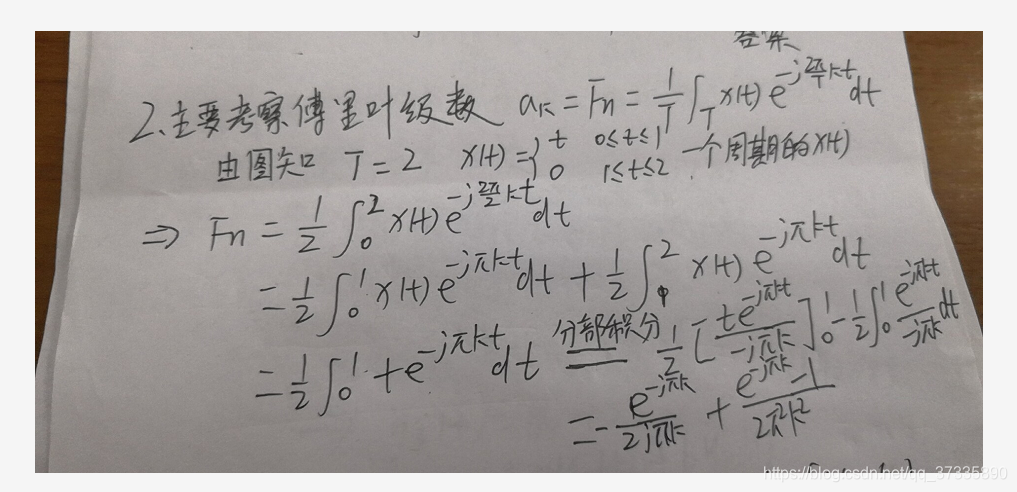 答案
2.主要考察傅里叶级数 aₖ = Fn = 1/T ∫_T x(t) e^{-j 2π/T kt} dt
由图知 T = 2 x(t) = { t 0≤t≤1 ; 0 1≤t≤2 . 一个周期的x(t)
⇒ Fn = 1/2 ∫_0^2 x(t) e^{-j 2π/2 kt} dt
= 1/2 ∫_0^1 x(t) e^{-jπkt} dt + 1/2 ∫_1^2 x(t) e^{-jπkt} dt
= 1/2 ∫_0^1 t e^{-jπkt} dt 分部积分 = 1/2 [ t e^{-jπkt} / -jπk ]_0^1 - 1/2 ∫_0^1 e^{-jπkt} / -jπk dt
= - e^{-jπk} / 2jπk + (e^{-jπk} - 1) / 2π²k²
https://blog.csdn.net/qq_37335890